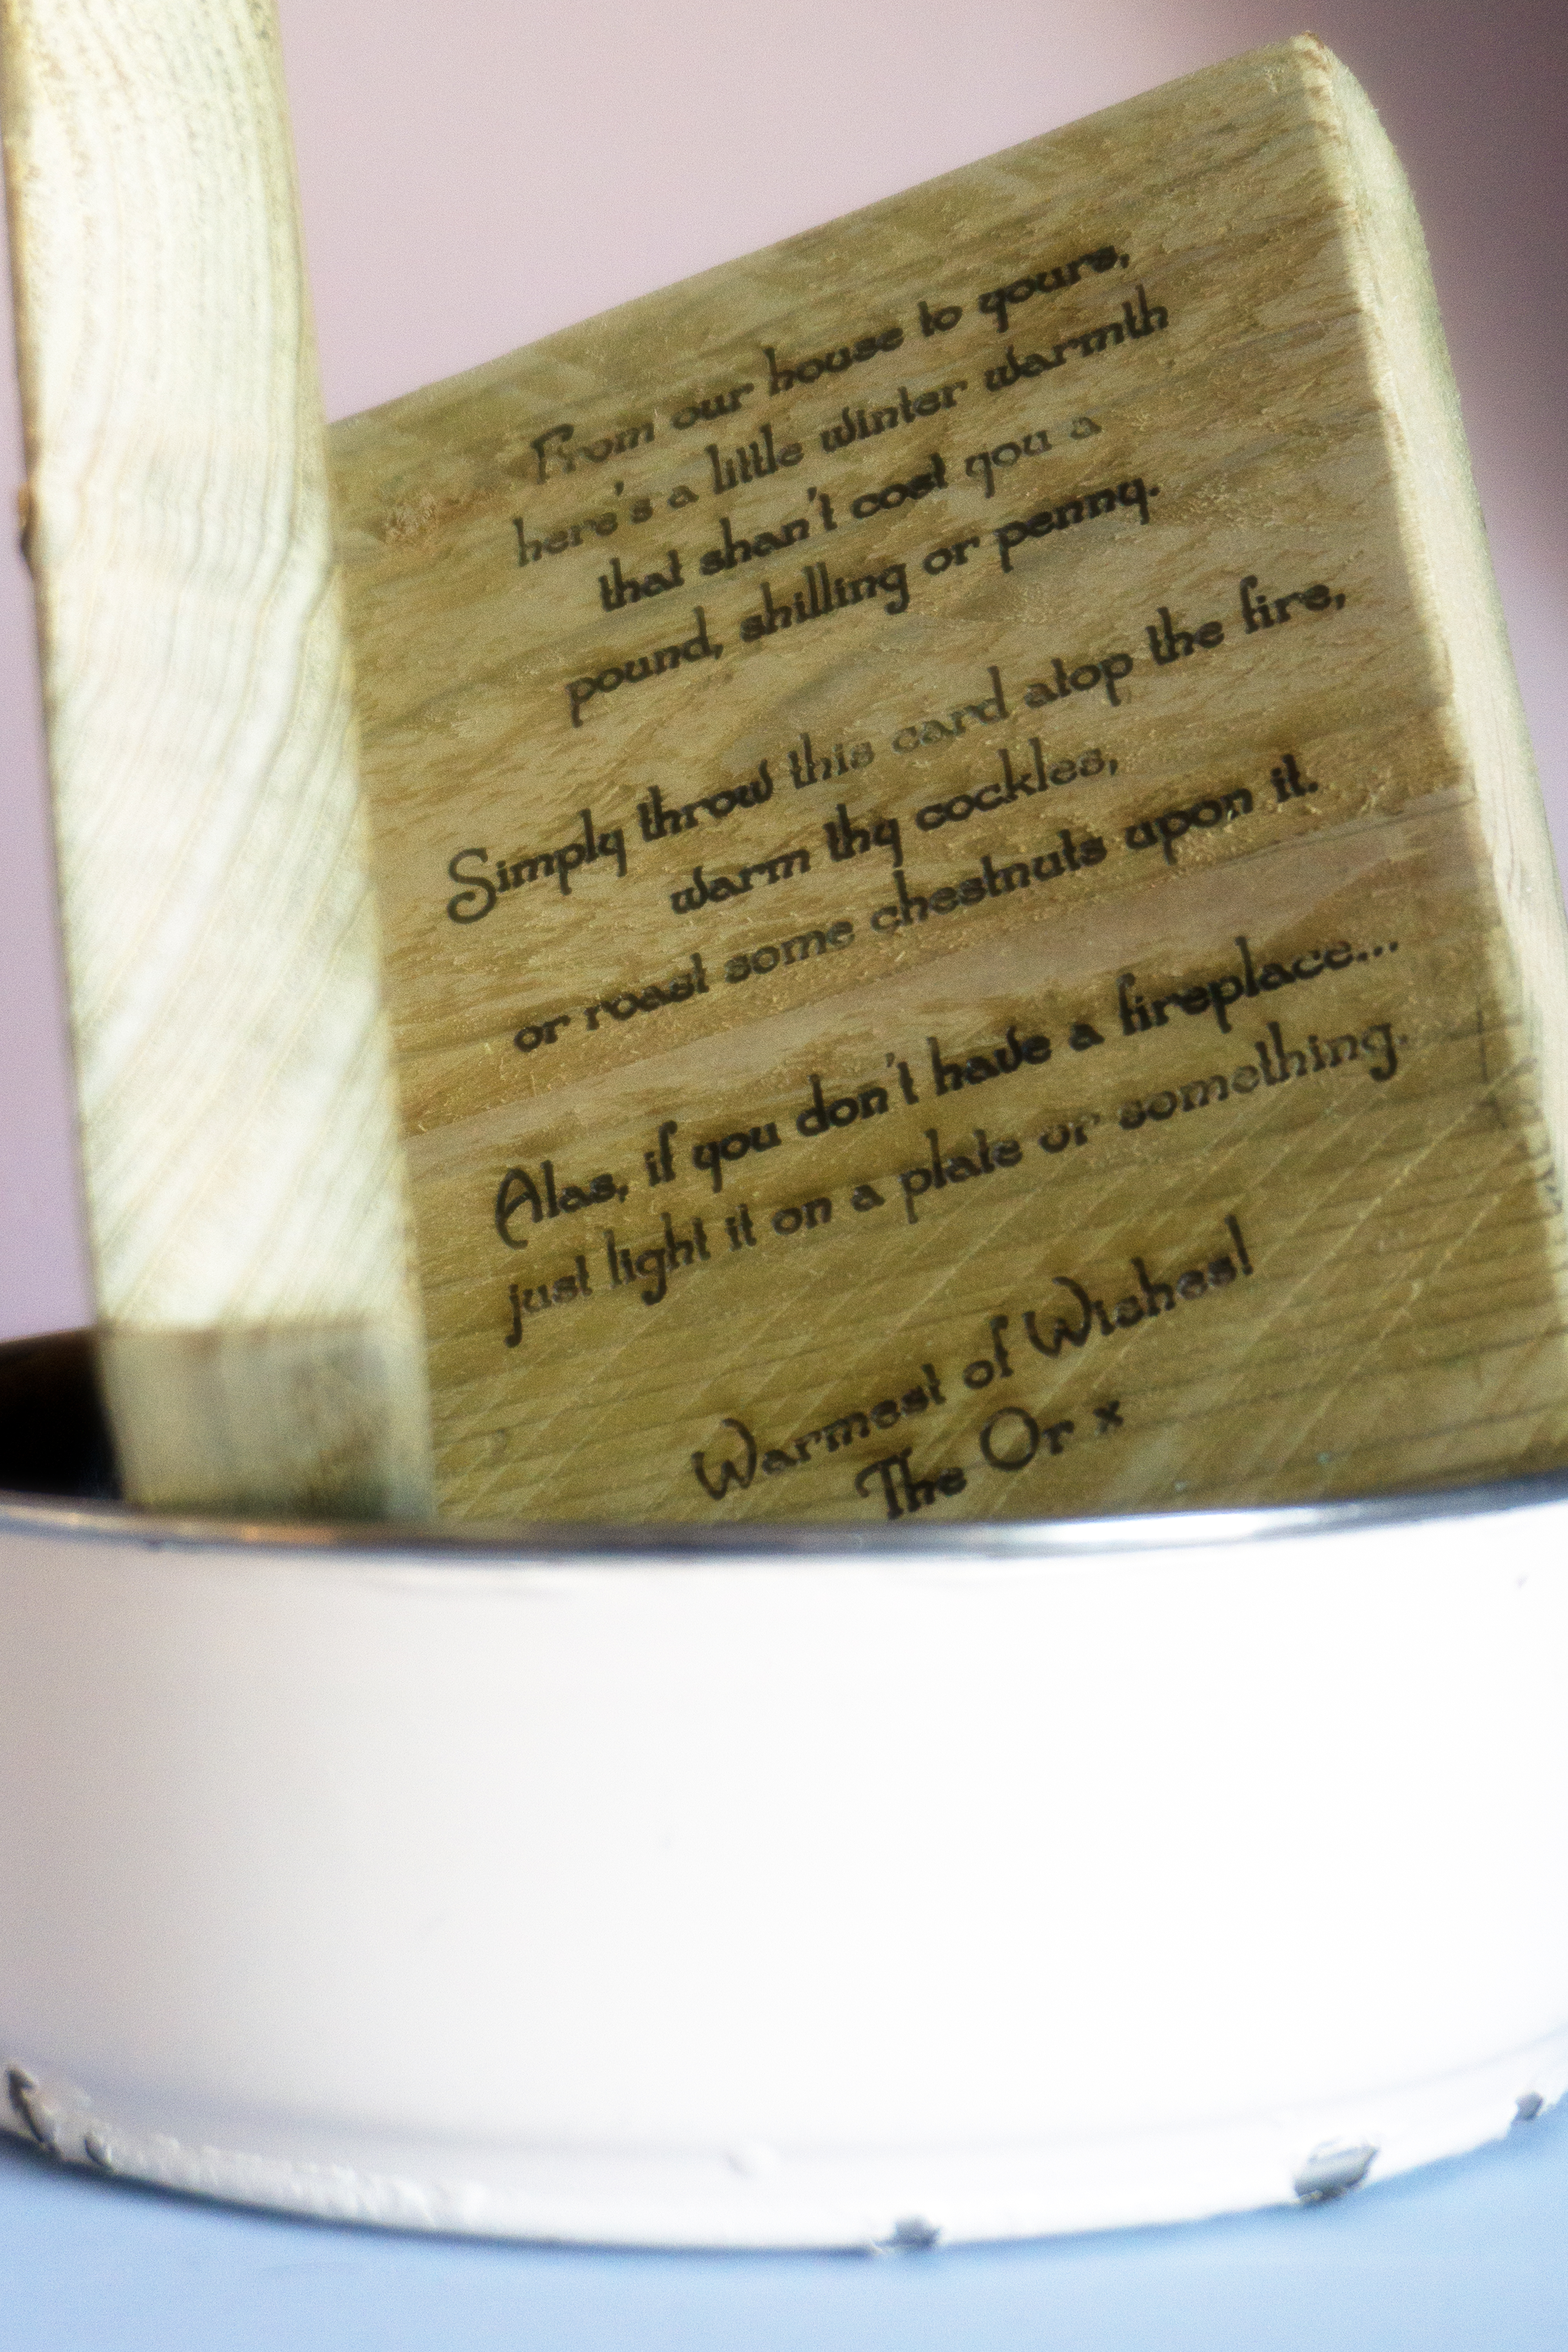 From our house to yours,
here's a little winter warmth
that shan't cost you a
pound, shilling or penny.
Simply throw this card atop the fire,
warm thy cockles,
or roast some chestnuts upon it.
Alas, if you don't have a fireplace...
just light it on a plate or something.
Warmest of Wishes!
The Or x